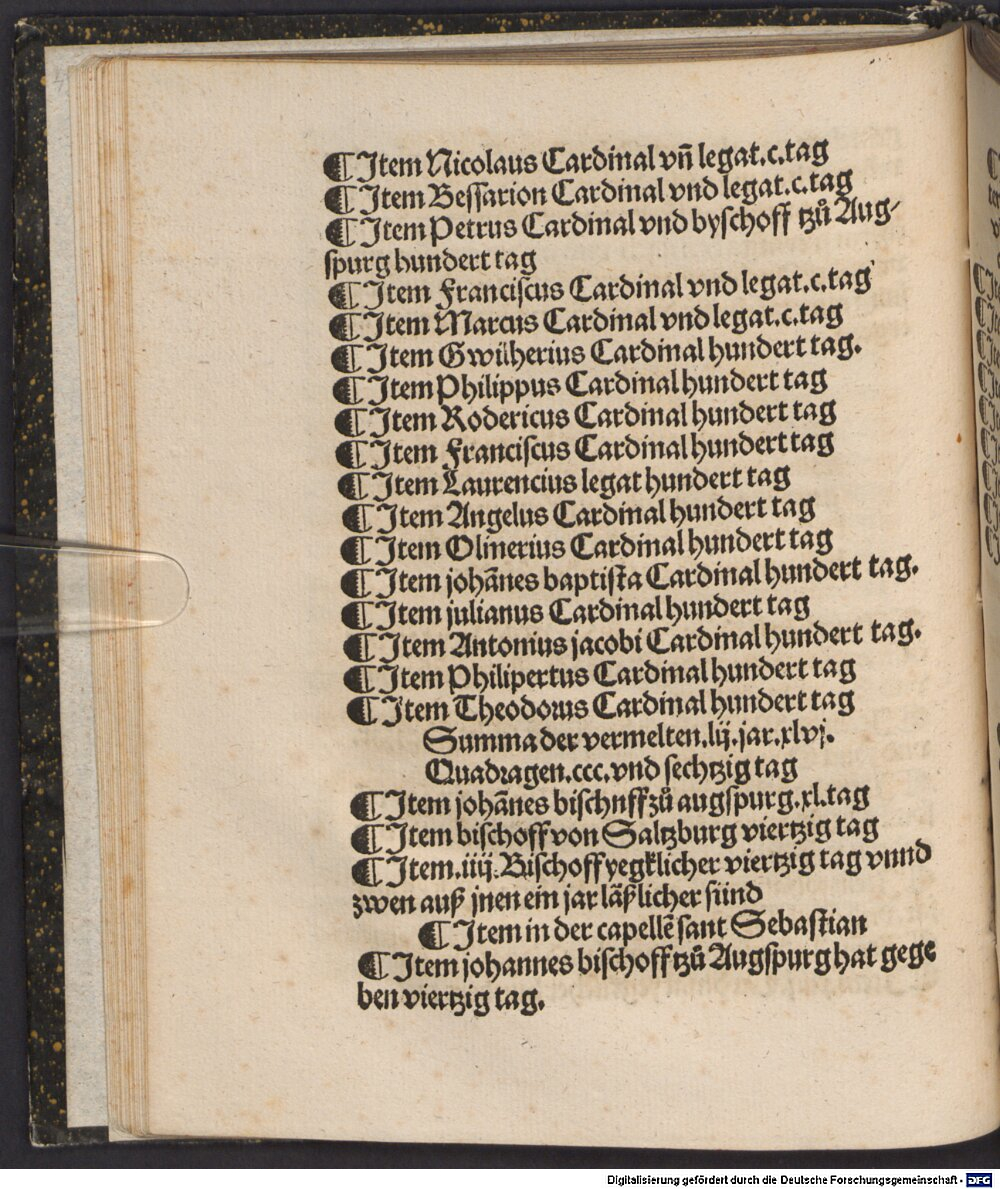 ¶ Item Nicolaus Cardinal vñ legat.c.tag
¶ Item Bessarion Cardinal vnd legat.c.tag
¶ Item Petrus Cardinal vnd byschoff tzů Aug⸗
spurg hundert tag
¶ Item Franciscus Cardinal vnd legat.c.tag
¶ Item Marcus Cardinal vnd legat.c.tag
¶ Item Gwüherius Cardinal hundert tag.
¶ Item Philippus Cardinal hundert tag
¶ Item Rodericus Cardinal hundert tag
¶ Item Franciscus Cardinal hundert tag
¶ Item Laurencius legat hundert tag
¶ Item Angelus Cardinal hundert tag
¶ Item Olinerius Cardinal hundert tag
¶ Item johānes baptista Cardinal hundert tag.
¶ Item julianus Cardinal hundert tag
¶ Item Antonius jacobi Cardinal hundert tag.
¶ Item Philipertus Cardinal hundert tag
¶ Item Theodorus Cardinal hundert tag
Summa der vermelten.lij.jar.xlvj.
Quadragen.ccc.vnd sechtzig tag
¶ Item johānes bischnff zů augspurg.xl.tag
¶ Item bischoff von Saltzburg viertzig tag
¶ Item.iiij.Bischoff yegklicher viertzig tag vnnd
zwen auß jnen ein jar läßlicher sünd
¶ Item in der capellē sant Sebastian
¶ Item johannes bischoff tzů Augspurg hat gege
ben viertzig tag.
Digitalisierung gefördert durch die Deutsche Forschungsgemeinschaft - DFG